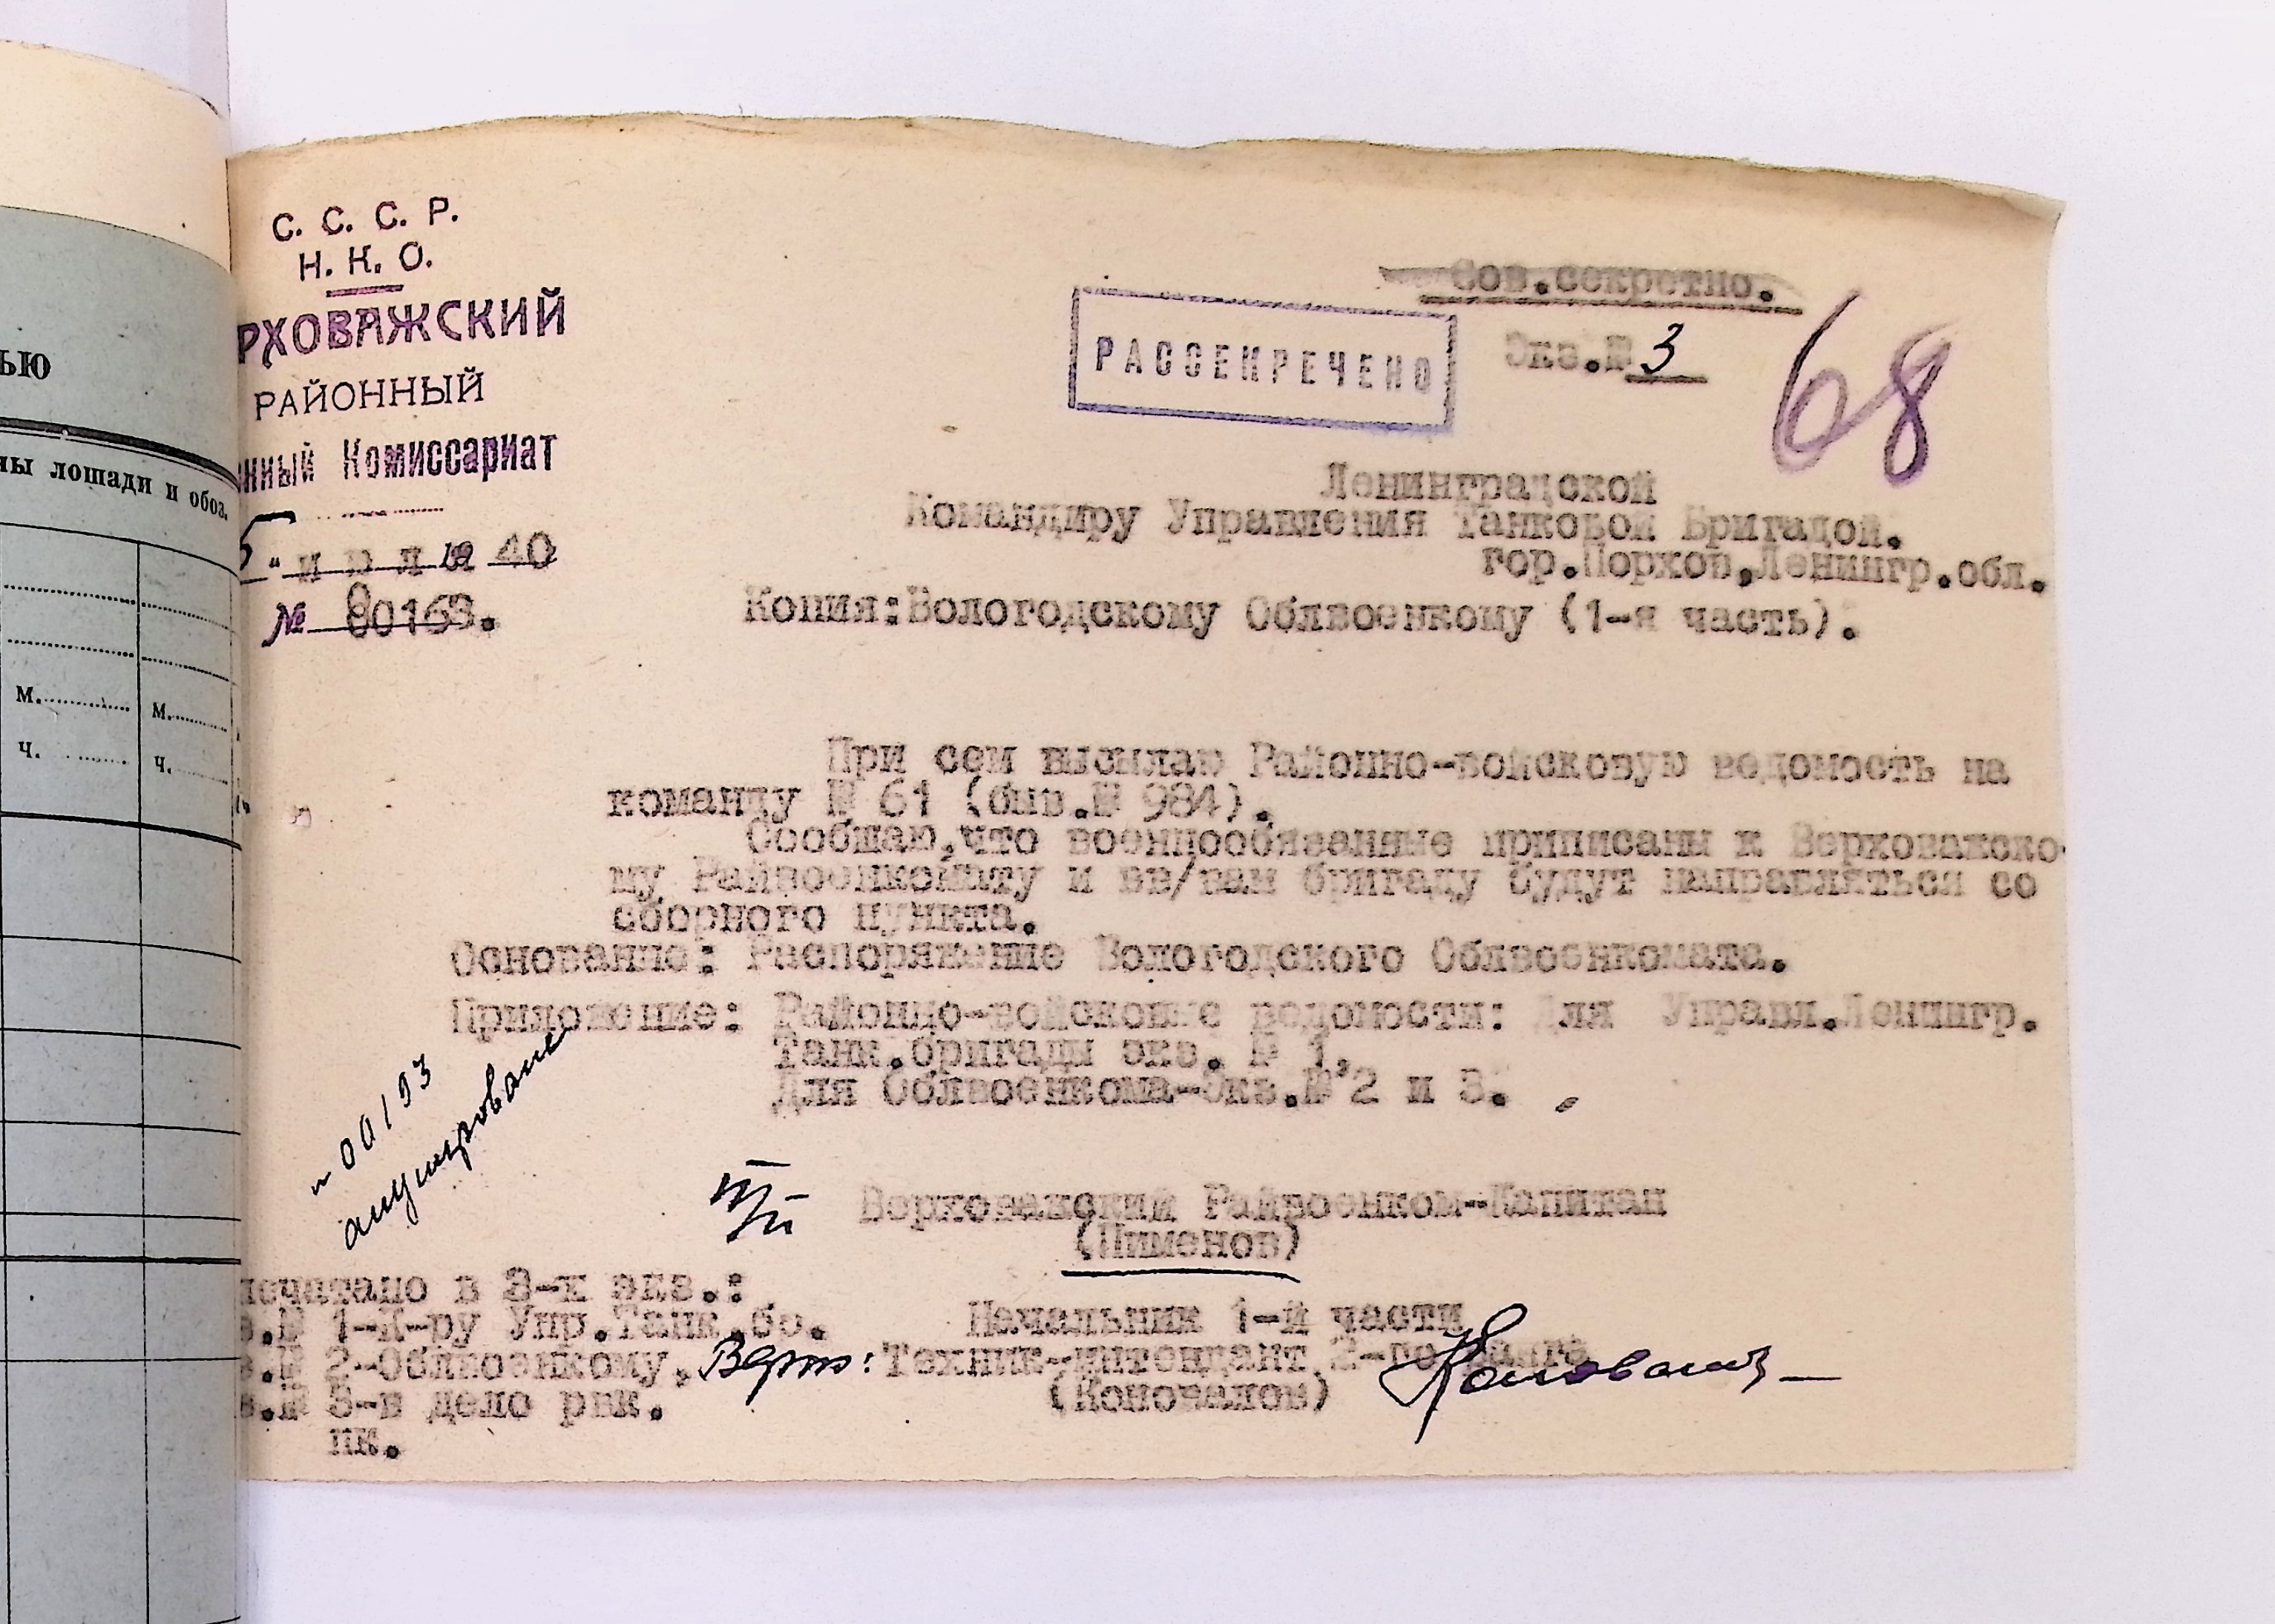 ЬЮ
ны лошади и обоз.
м. м.
ч. ч.
С. С. С. Р.
Н. К. О.
РХОВАЖСКИЙ
РАЙОННЫЙ
нный Комиссариат
" июля 1940
№ 80163.
Сов.секретно.
РАССЕКРЕЧЕНО
Экз.№ 3
68
Ленинградской
Командиру Управления Танковой Бригадой.
гор.Порхов,Ленингр.обл.
Копия:Вологодскому Облвоенкому (1-я часть).
При сем высылаю Районно-войсковую ведомость на
команду № 61 (бив.№ 984).
Сообщаю,что военнообязанные приписаны к Верховажско-
му Райвоенкомату и вв/вам бригаду будут направляться со
сборного пункта.
Основание: Распоряжение Вологодского Облвоенкомата.
Приложение: Районно-войсковые ведомости: Для Управл.Ленингр.
Танк.бригады экз. № 1,
Для Облвоенкома-Экз.№ 2 и 3.
00193
анулировано
п/п Верховажский Райвоенком-Капитан
(Пименов)
печатано в 3-х экз.:
з.№ 1-К-ру Упр.Танк.бр.
з.№ 2-Облвоенкому,
з.№ 3-в дело рвк.
пк.
Начальник 1-й части
Верно: Техник-интендант 2-го ранга
(Коновалов) Коновалов